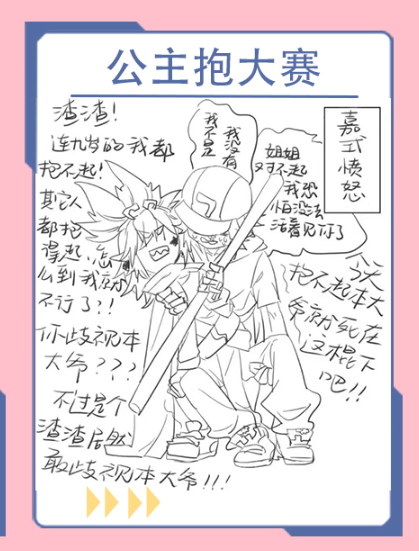 公主抱大赛
渣渣!
连九岁的我都
抱不起!
其它人
都抱
得起,怎
么到我就
不行了?!
你歧视本
大爷???
不过是个
渣渣居然
敢歧视本大爷!!!
我没有
我不是
姐姐
对不起
我恐
怕没法
活着见你了
嘉式愤怒
今天
抱不起本大
爷就死在
这棍下
吧!!